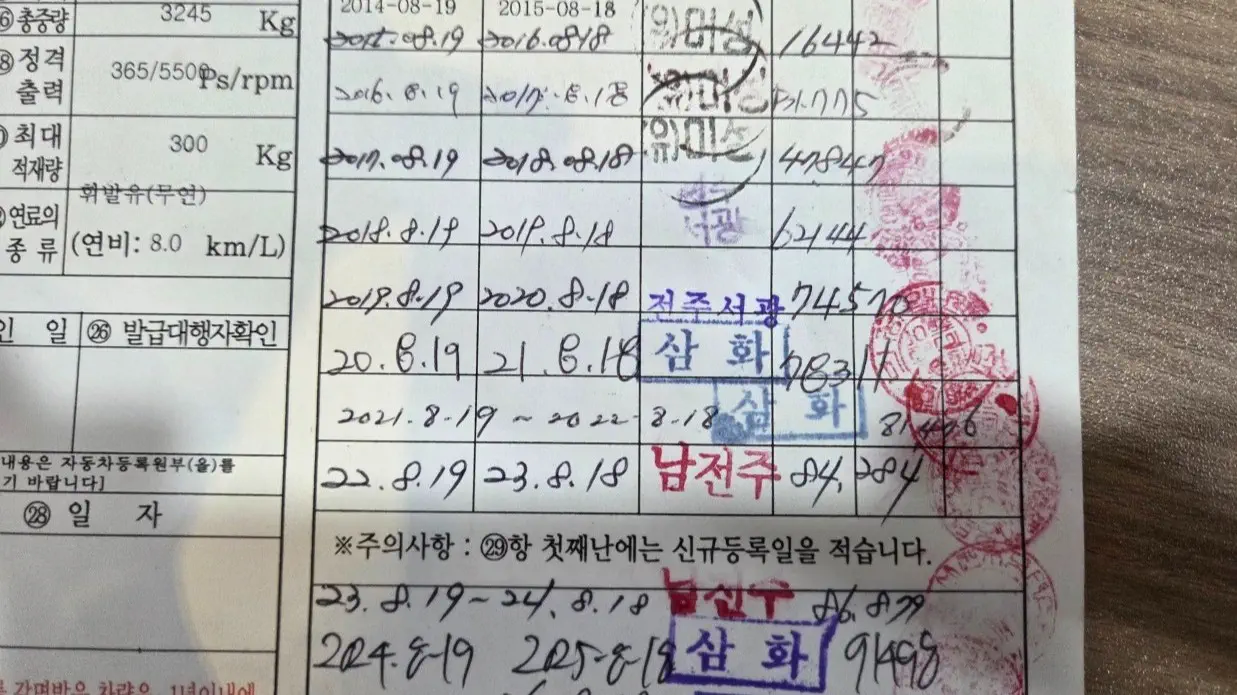 ⑥총중량 3245 Kg
2014-08-19 2015-08-18
2015.08.19 2016.08.18 (유)미성 16442
⑧ 정격 출력 365/5500 Ps/rpm
2016.8.19 2017.8.18 31775
최대 적재량 300 Kg
2017.08.19 2018.08.18 (유)미성 47847
휘발유(무연)
연료의 종류 (연비: 8.0 km/L)
2018.8.19 2019.8.18 서광 62144
2019.8.19 2020.8.18 전주서광 74570
인 일 ㉖ 발급대행자확인
20.8.19 21.8.18 삼화 78311
2021.8.19 ~ 2022.8.18 삼화 81406
22.8.19 23.8.18 남전주 84,284
내용은 자동차등록원부(을)를
기 바랍니다]
㉘ 일 자
※주의사항 : ㉙항 첫째난에는 신규등록일을 적습니다.
23.8.19~24.8.18 86,899
2024.8-19 2025-8-18 삼화 91498
간면받은 차량은 1년이내에